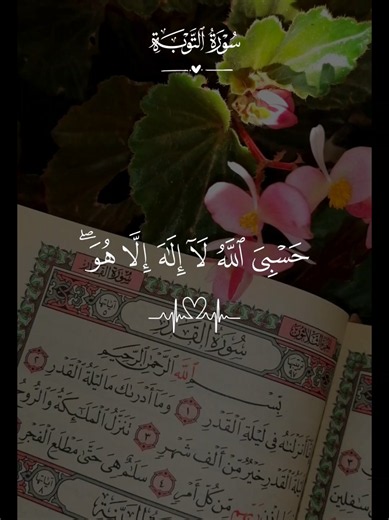 سُورَةُ ٱلتَّوْبَةِ
حَسْبِيَ ٱللَّهُ لَآ إِلَٰهَ إِلَّا هُوَ ۖ
سُورَةُ الْقَدْرِ
بِسْمِ اللَّهِ الرَّحْمَٰنِ الرَّحِيمِ
إِنَّا أَنزَلْنَٰهُ فِي لَيْلَةِ الْقَدْرِ ١ وَمَا أَدْرَىٰكَ مَا لَيْلَةُ الْقَدْرِ ٢
لَيْلَةُ الْقَدْرِ خَيْرٌ مِّنْ أَلْفِ شَهْرٍ ٣ تَنَزَّلُ الْمَلَٰٓئِكَةُ وَالرُّوحُ
مِّن كُلِّ أَمْرٍ ٤ سَلَٰمٌ هِيَ حَتَّىٰ مَطْلَعِ الْفَجْرِ